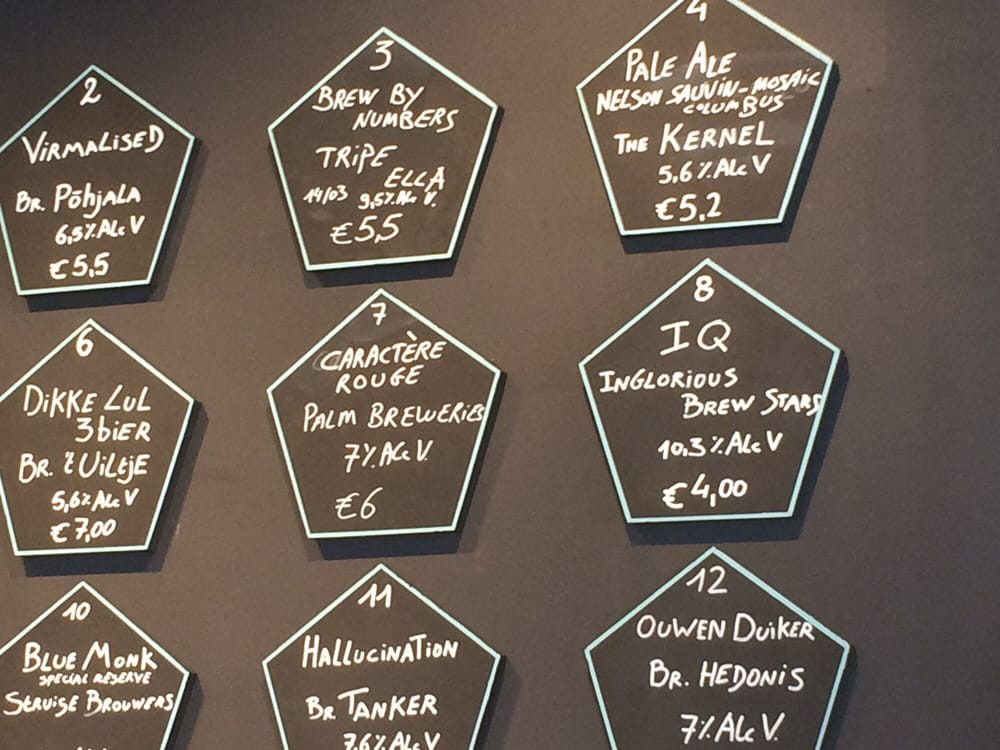 2
VIRMALISED
BR. PÕHJALA
6,5% ALC V
€5,5
3
BREW BY
NUMBERS
TRIPE
ELLA
14/03 9,5% ALC V.
€5,5
4
PALE ALE
NELSON SAUVIN-MOSAIC
COLUMBUS
THE KERNEL
5,6% ALC V
€5,2
6
DIKKE LUL
3 BIER
BR. 'T UILTJE
5,6% ALC V
€7,00
7
CARACTÈRE
ROUGE
PALM BREWERIES
7% ALC V.
€6
8
IQ
INGLORIOUS
BREW STARS
10,3% ALC V
€4,00
10
BLUE MONK
SPECIAL RESERVE
STRUISE BROUWERS
11
HALLUCINATION
BR TANKER
7,6% ALC V
12
OUWEN DUIKER
BR. HEDONIS
7% ALC V.